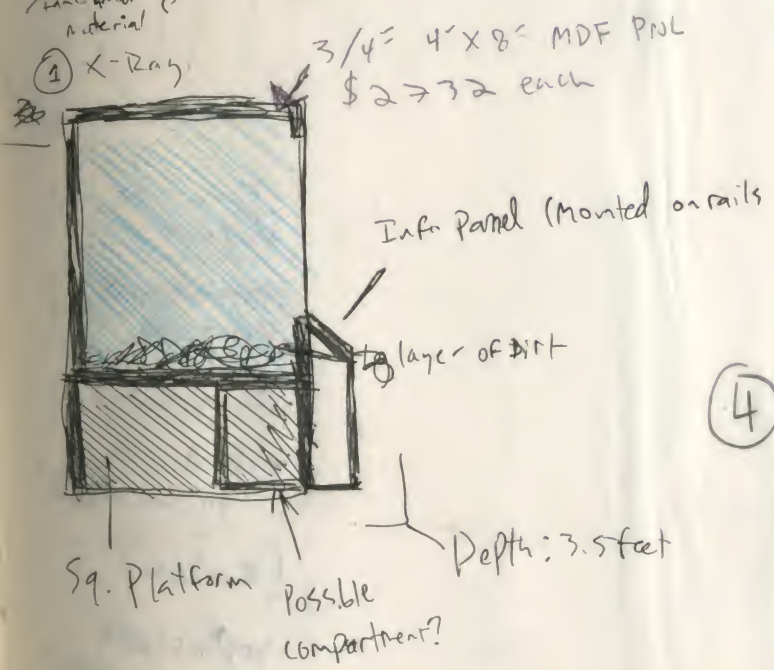 material
① X-Ray
3/4" 4'X8' MDF PNL
$2732 each
Info Panel (Mounted on rails
layer of Dirt
④
Depth: 3.5 feet
Sq. Platform
Possible
compartment?